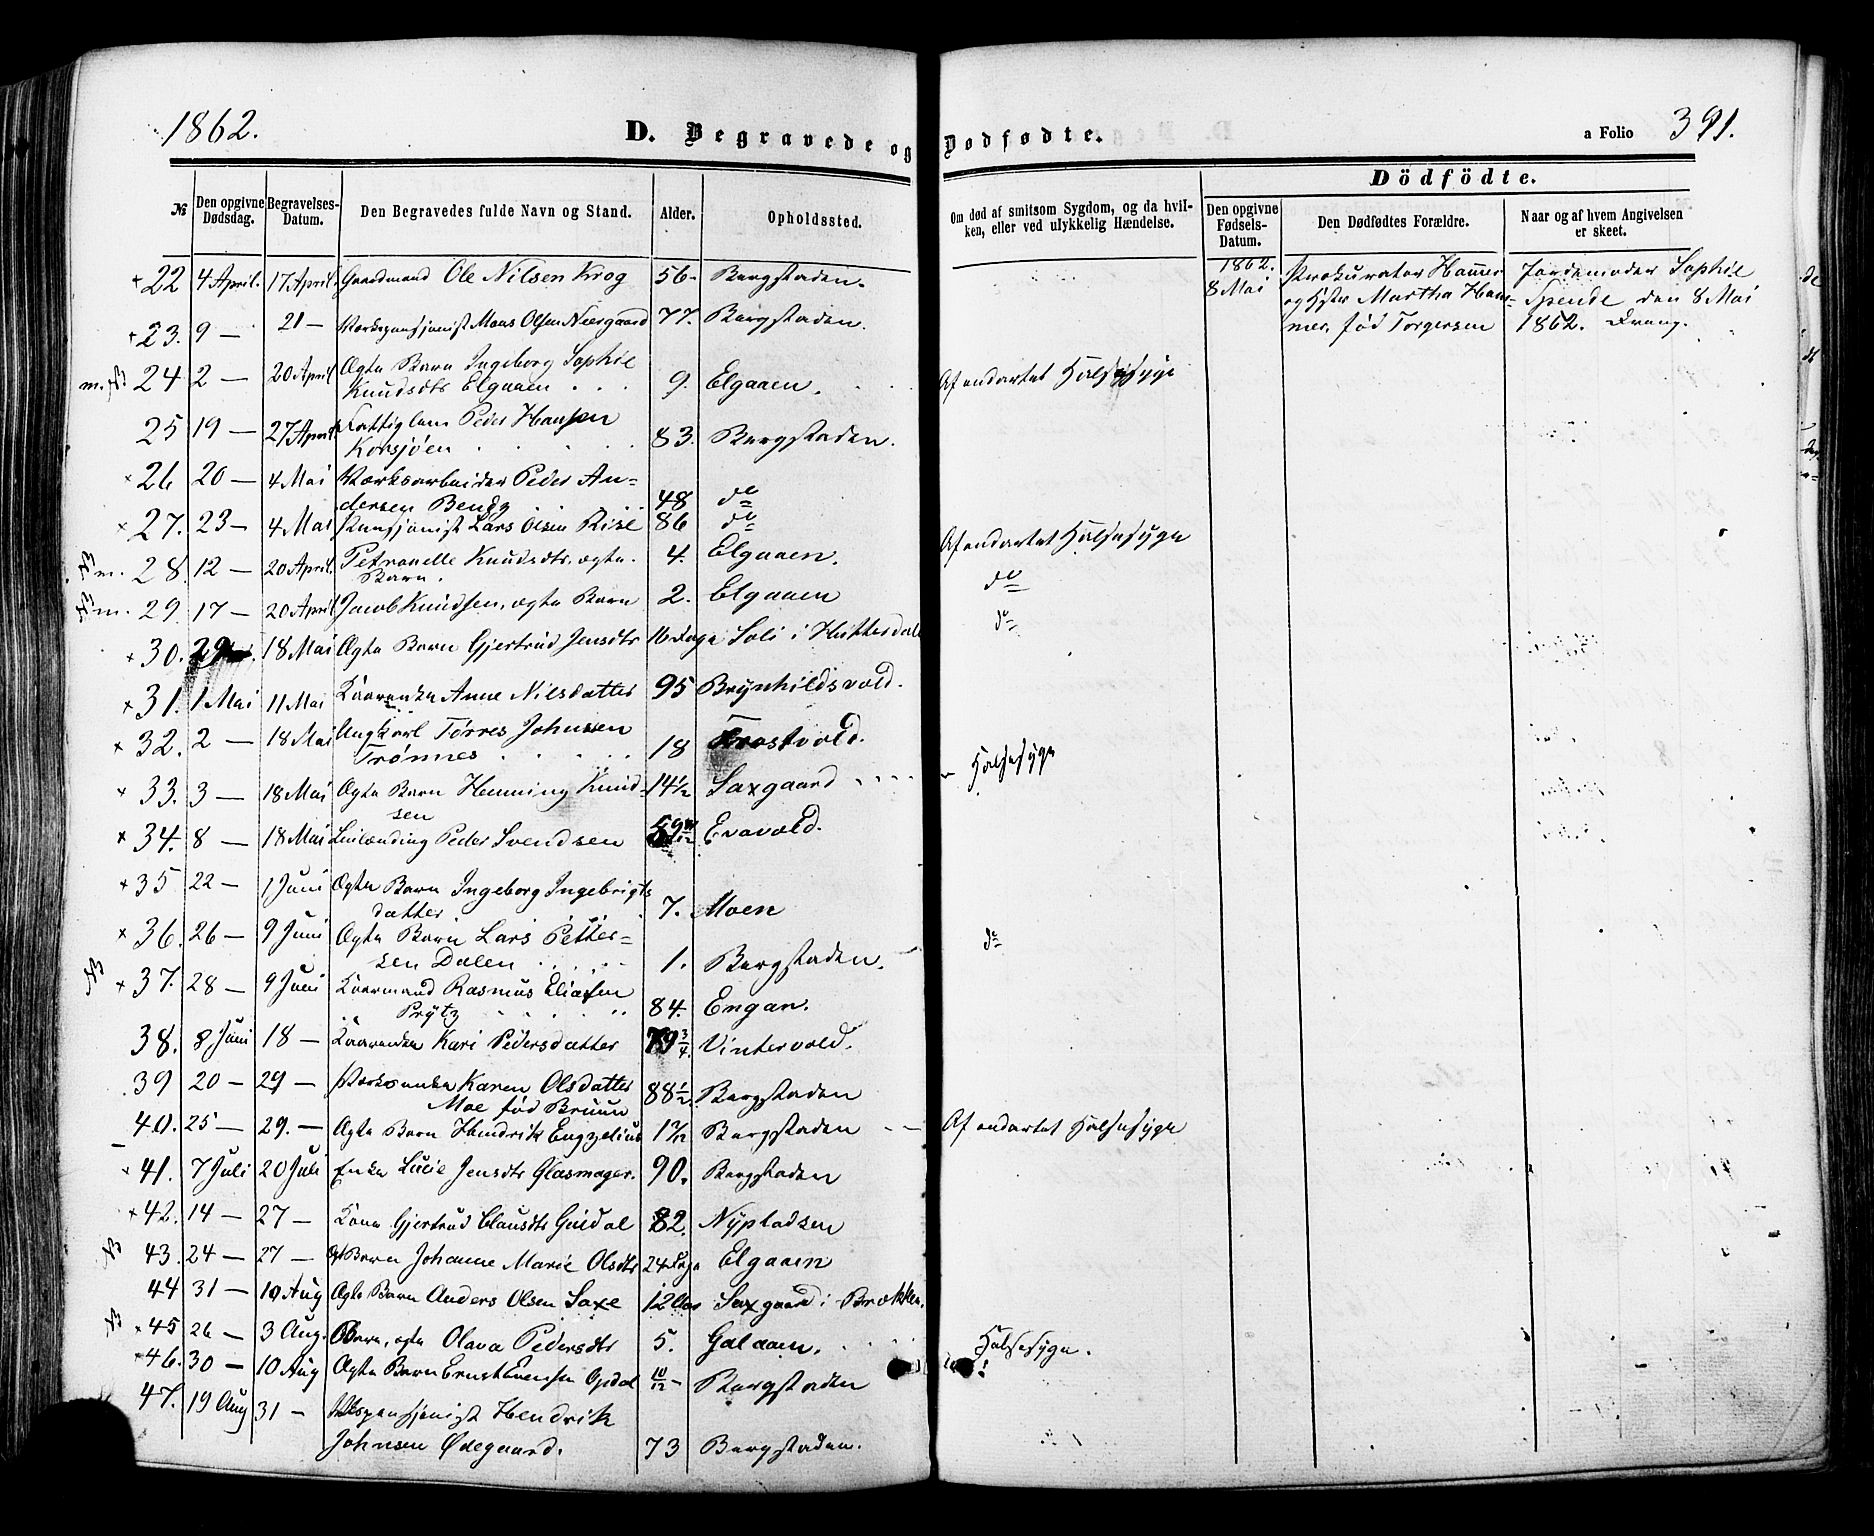 1862.
D. Begravede og Dødfødte.
a Folio 391.
№
Den opgivne Dødsdag.
Begravelses-Datum.
Den Begravedes fulde Navn og Stand.
Alder.
Opholdssted.
Om død af smitsom Sygdom, og da hvil-
ken, eller ved ulykkelig Hændelse.
Dödfödte.
Den opgivne Fødsels-Datum.
Den Dødfødtes Forældre.
Naar og af hvem Angivelsen er skeet.
+ 22 4 April. 17 April. Gaardmand Ole Nilsen Krog 56 - Bergstaden.
1862. 8 Mai Prokurator Hammer Jordemoder Sophie
og Hstr Martha Ham- Spende den 8 Mai
mer, fød Torgersen 1862. Dreng.
+ 23. 9 — 21 — Værkspensjonist Mons Olsen Neergaard 77. Bergstaden.
m. 24 2 — 20 April Ægte Barn Ingeborg Sophie
Knudsdtr Elgaaen . . . 9. Elgaaen. Af ondartet Halssyge
25 19 — 27 April Fattiglem Peder Hansen
Korsjøen 83. Bergstaden.
× 26 20 — 4 Mai Værksarbeider Peder An=
dersen Bendz 48 do
× 27. 23 — 4 Mai Pensjonist Lars Olsen Rise 86 do
m. 28. 12 — 20 April. Petronelle Knudsdtr. ægte. 4. Elgaaen. Af ondartet Halsesyge
Barn.
m. 29. 17 — 20 April Jacob Knudsen, ægte Barn 2. Elgaaen do
+ 30. 29 18 Mai Ægte Barn Gjertrud Jensdtr 16 Dage Soli i Hittesdal do
× 31. 1 Mai 11 Mai Kaarenke Anne Nilsdatter 95 Brynhildsvold.
× 32. 2 — 18 Mai Ungkarl Tørres Johnsen
Trønnes . . . . . 18 Frostvold.
× 33. 3 — 18 Mai Ægte Barn Henning Knud- 14½ Saxgaard - Halsesyge
sen
× 34. 8 — 18 Mai Leilænding Peder Svendsen Evavold.
× 35 22 — 1 Juni Ægte Barn Ingeborg Ingebrigts
datter 7. Moen
× 36. 26 — 9 Juni Ægte Barn Lars Petter=
sen Dalen 1. Bergstaden. do
× 37. 28 — 9 Juni Kaarmand Rasmus Eliasen
Prytz 84. Engan.
38. 8 Juni 18 — Kaarenke Kari Pedersdatter 79¾ Vintervold.
39 20 — 29 — Værksenke Karen Olsdatter 88½ Bergstaden
Moe fød Bruun
40. 25 — 29. — Ægte Barn Hendrik Engzelius Bergstaden Af ondartet Halsesyge
41. 7 Juli 20 Juli Enke Lucie Jensdtr Glasmager. 90. Bergstaden
× 42. 14 — 27 — Kone Gjertrud Clausdtr Guldal 82. Nypladsen
43. 24 — 27 — Barn Johanne Marie Olsdtr 24 Dage Elgaaen
44 31 — 10 Aug Ægte Barn Anders Olsen Saxe 12 Saxgaard i Brekken.
× 45 26 — 3 Aug. Barn, ægte Olava Pedersdtr 5. Galaaen. Halsesyge.
46. 30 — 10 Aug Ægte Barn Ernst Evensen Opdal 10/12 - Bergstaden do!
47. 19 Aug 31 — Hendrik
Johnsen Ødegaard. 73 Bergstaden.